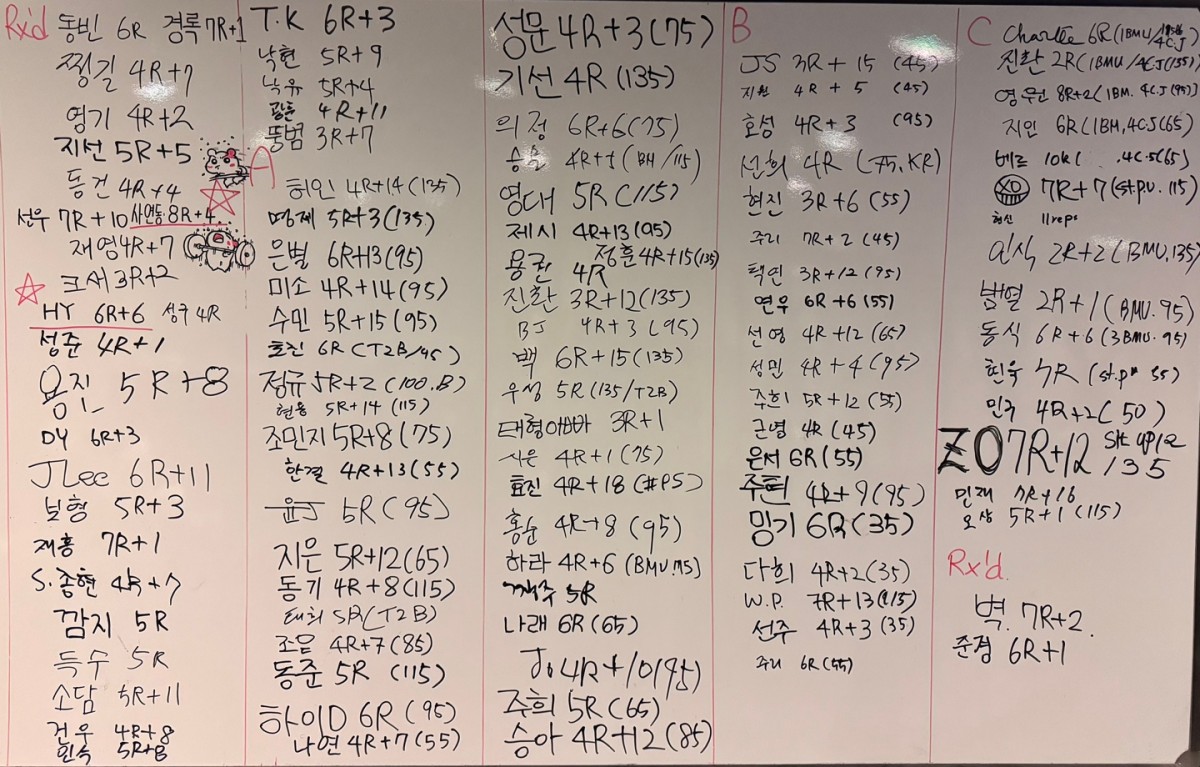 Rx'd 동빈 6R 경록 7R+1
찡길 4R+7
영기 4R+2
지선 5R+5
등건 4R+4
선우 7R+10 사연동 8R+4
재영 4R+7
크서 3R+2
HY 6R+6 성구 4R
성준 4R+1
용진 5R+8
DY 6R+3
JLee 6R+11
보형 5R+3
재홍 7R+1
S.종현 4R+7
깜지 5R
득수 5R
소담 5R+11
건우 4R+8
5R+8
T.K 6R+3
낙현 5R+9
낙유 5R+4
4R+11
뚱범 3R+7
A
허인 4R+14(135)
명제 5R+3(135)
은별 6R+13(95)
미소 4R+14(95)
수민 5R+15(95)
효진 6R(T2B/45)
정규 5R+2(100.B)
현용 5R+14(115)
조민지 5R+8(75)
한결 4R+13(55)
윤J 5R(95)
지은 5R+12(65)
동기 4R+8(115)
태희 5R(T2B)
조은 4R+7(85)
동준 5R (115)
하이D 6R(95)
나연 4R+7(55)
성문 4R+3(75)
기선 4R(135)
의정 6R+6(75)
4R+1(BH/115)
영대 5R(115)
제시 4R+13(95)
용권 4R 정훈 4R+15(135)
진환 3R+12(135)
BJ 4R+3(95)
백 6R+15(135)
우성 5R(135/T2B)
대형아빠 3R+1
시은 4R+1(75)
효진 4R+18(#PS)
홍순 4R+8(95)
하라 4R+6(BMU.75)
5R
나래 6R(65)
Jo 4R+10(95)
주희 5R(65)
승아 4R+12(85)
B
JS 3R+15(45)
지원 4R+5 (45)
효성 4R+3 (95)
선희 4R (75,KR)
현진 3R+6 (55)
주리 7R+2 (45)
택연 3R+12(95)
연우 6R+6(55)
선영 4R+12(65)
성민 4R+4(95)
주희 5R+12(55)
근영 4R(45)
은서 6R(55)
주현 4R+9(95)
밍기 6R(35)
다희 4R+2(35)
W.P. 7R+13(115)
선주 4R+3(35)
주리 6R(55)
C
Charlee 6R(1BMU/4CJ)
진환 2R(1BMU/4CJ(135))
영원 8R+2(1BM.4CJ(95))
지인 6R(1BM,4CJ(65)
베르 .4CJ(65)
XO 7R+7(st.pu.115)
형신 11reps
인식 2R+2(BMU,135)
범열 2R+1(BMU.95)
동식 6R+6(3BMU.95)
현욱 7R(st.p# 55)
민구 4R+2(50)
ZO 7R+12 sit up12/135
민재 7R+16
오상 5R+1(115)
Rx'd.
벽. 7R+2.
준경 6R+1